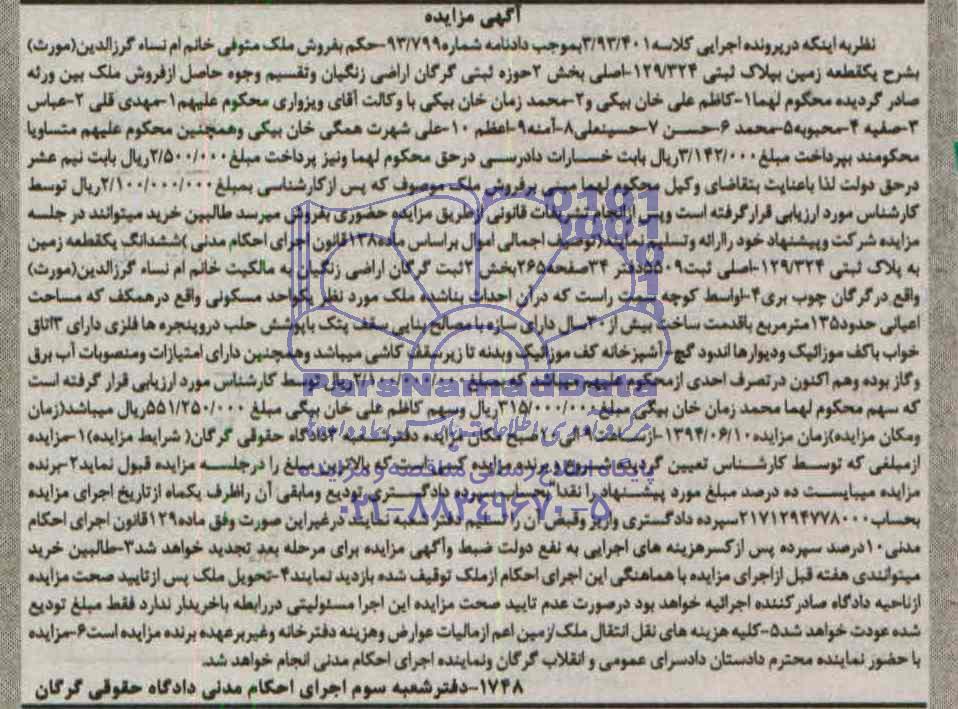 آگهی مزایده
نظر به اینکه در پرونده اجرایی کلاسه ۳/۹۳/۴۰۱ بموجب دادنامه شماره ۹۳/۷۹۹-حکم بفروش ملک متوفی خانم ام نساء گرزالدین(مورث)
بشرح یکقطعه زمین بپلاک ثبتی ۱۲۹/۳۲۴-اصلی بخش ۲حوزه ثبتی گرگان اراضی زنگیان وتقسیم وجوه حاصل ازفروش ملک بین ورثه
صادر گردیده محکوم لهما۱-کاظم علی خان بیکی و۲-محمد زمان خان بیکی با وکالت آقای ویزواری محکوم علیهم۱-مهدی قلی ۲-عباس
۳-صفیه ۴-محبوبه۵-محمد ۶-حسن ۷-حسینعلی۸-آمنه۹-اعظم ۱۰-علی شهرت همگی خان بیکی وهمچنین محکوم علیهم متساویا
محکومند بپرداخت مبلغ۳/۱۴۲/۰۰۰ریال بابت خسارات دادرسی درحق محکوم لهما ونیز پرداخت مبلغ۲/۵۰۰/۰۰۰ریال بابت نیم عشر
درحق دولت لذا باعنایت بتقاضای وکیل محکوم لهما مبنی برفروش ملک موصوف که پس ازکارشناسی بمبلغ۲/۱۰۰/۰۰۰/۰۰۰ریال توسط
کارشناس مورد ارزیابی قرارگرفته است وپس ازانجام تشریفات قانونی ازطریق مزایده حضوری بفروش میرسد طالبین خرید میتوانند در جلسه
مزایده شرکت وپیشنهاد خود راارائه وتسلیم نمایند(توصیف اجمالی اموال براساس ماده۱۳۸قانون اجرای احکام مدنی )ششدانگ یکقطعه زمین
به پلاک ثبتی ۱۲۹/۳۲۴-اصلی ثبت۵۵۰۹دفتر ۳۴صفحه۲۶۵بخش ۲ثبت گرگان اراضی زنگیان به مالکیت خانم ام نساء گرزالدین(مورث)
واقع درگرگان چوب بری۴-اواسط کوچه سمت راست که درآن احداث بناشده ملک مورد نظر یکواحد مسکونی واقع درهمکف که مساحت
اعیانی حدود۱۳۵مترمربع باقدمت ساخت بیش از۳۰سال دارای سازه با مصالح بنایی سقف پتک باپوشش حلب دروپنجره ها فلزی دارای ۳اتاق
خواب باکف موزائیک ودیوارها اندود گچ-آشپزخانه کف موزائیک وبدنه تا زیرسقف کاشی میباشد وهمچنین دارای امتیازات ومنصوبات آب برق
وگاز بوده وهم اکنون درتصرف احدی ازمحکوم علیهم میباشد که بمبلغ ۲/۱۰۰/۰۰۰/۰۰۰ریال توسط کارشناس مورد ارزیابی قرار گرفته است
که سهم محکوم لهما محمد زمان خان بیکی مبلغ۳۱۵/۰۰۰/۰۰۰ریال وسهم کاظم علی خان بیگی مبلغ ۵۵۱/۲۵۰/۰۰۰ریال میباشد(زمان
ومکان مزایده)زمان مزایده۱۳۹۴/۰۶/۱۰-ازساعت۹الی۱۰صبح مکان مزایده دفترشعبه ۳دادگاه حقوقی گرگان( شرایط مزایده)۱-مزایده
ازمبلغی که توسط کارشناس تعیین گردیده شروع وبرنده مزایده کسی است که بالاترین مبلغ را درجلسه مزایده قبول نماید۲-برنده
مزایده میبایست ده درصد مبلغ مورد پیشنهاد را نقدا"بحساب سپرده دادگستری تودیع ومابقی آن راظرف یکماه ازتاریخ اجرای مزایده
بحساب۲۱۷۱۲۹۴۷۷۸۰۰۰سپرده دادگستری واریز وقبض آن را تسلیم دفترشعبه نمایند درغیراین صورت وفق ماده۱۲۹قانون اجرای احکام
مدنی۱۰درصد سپرده پس ازکسرهزینه های اجرایی به نفع دولت ضبط وآگهی مزایده برای مرحله بعد تجدید خواهد شد۳-طالبین خرید
میتوانندی هفته قبل ازاجرای مزایده با هماهنگی این اجرای احکام ازملک توقیف شده بازدید نمایند۴-تحویل ملک پس ازتایید صحت مزایده
ازناحیه دادگاه صادرکننده اجرائیه خواهد بود درصورت عدم تایید صحت مزایده این اجرا مسئولیتی دررابطه باخریدار ندارد فقط مبلغ تودیع
شده عودت خواهد شد۵-کلیه هزینه های نقل انتقال ملک/زمین اعم ازمالیات عوارض وهزینه دفترخانه وغیربرعهده برنده مزایده است۶-مزایده
با حضور نماینده محترم دادستان دادسرای عمومی و انقلاب گرگان ونماینده اجرای احکام مدنی انجام خواهد شد.
۱۷۴۸-دفترشعبه سوم اجرای احکام مدنی دادگاه حقوقی گرگان
ParsNamadData
پایگاه اطلاع رسانی مناقصه و مزایده
۰۲۱-۸۸۳۴۹۶۷۰-۵